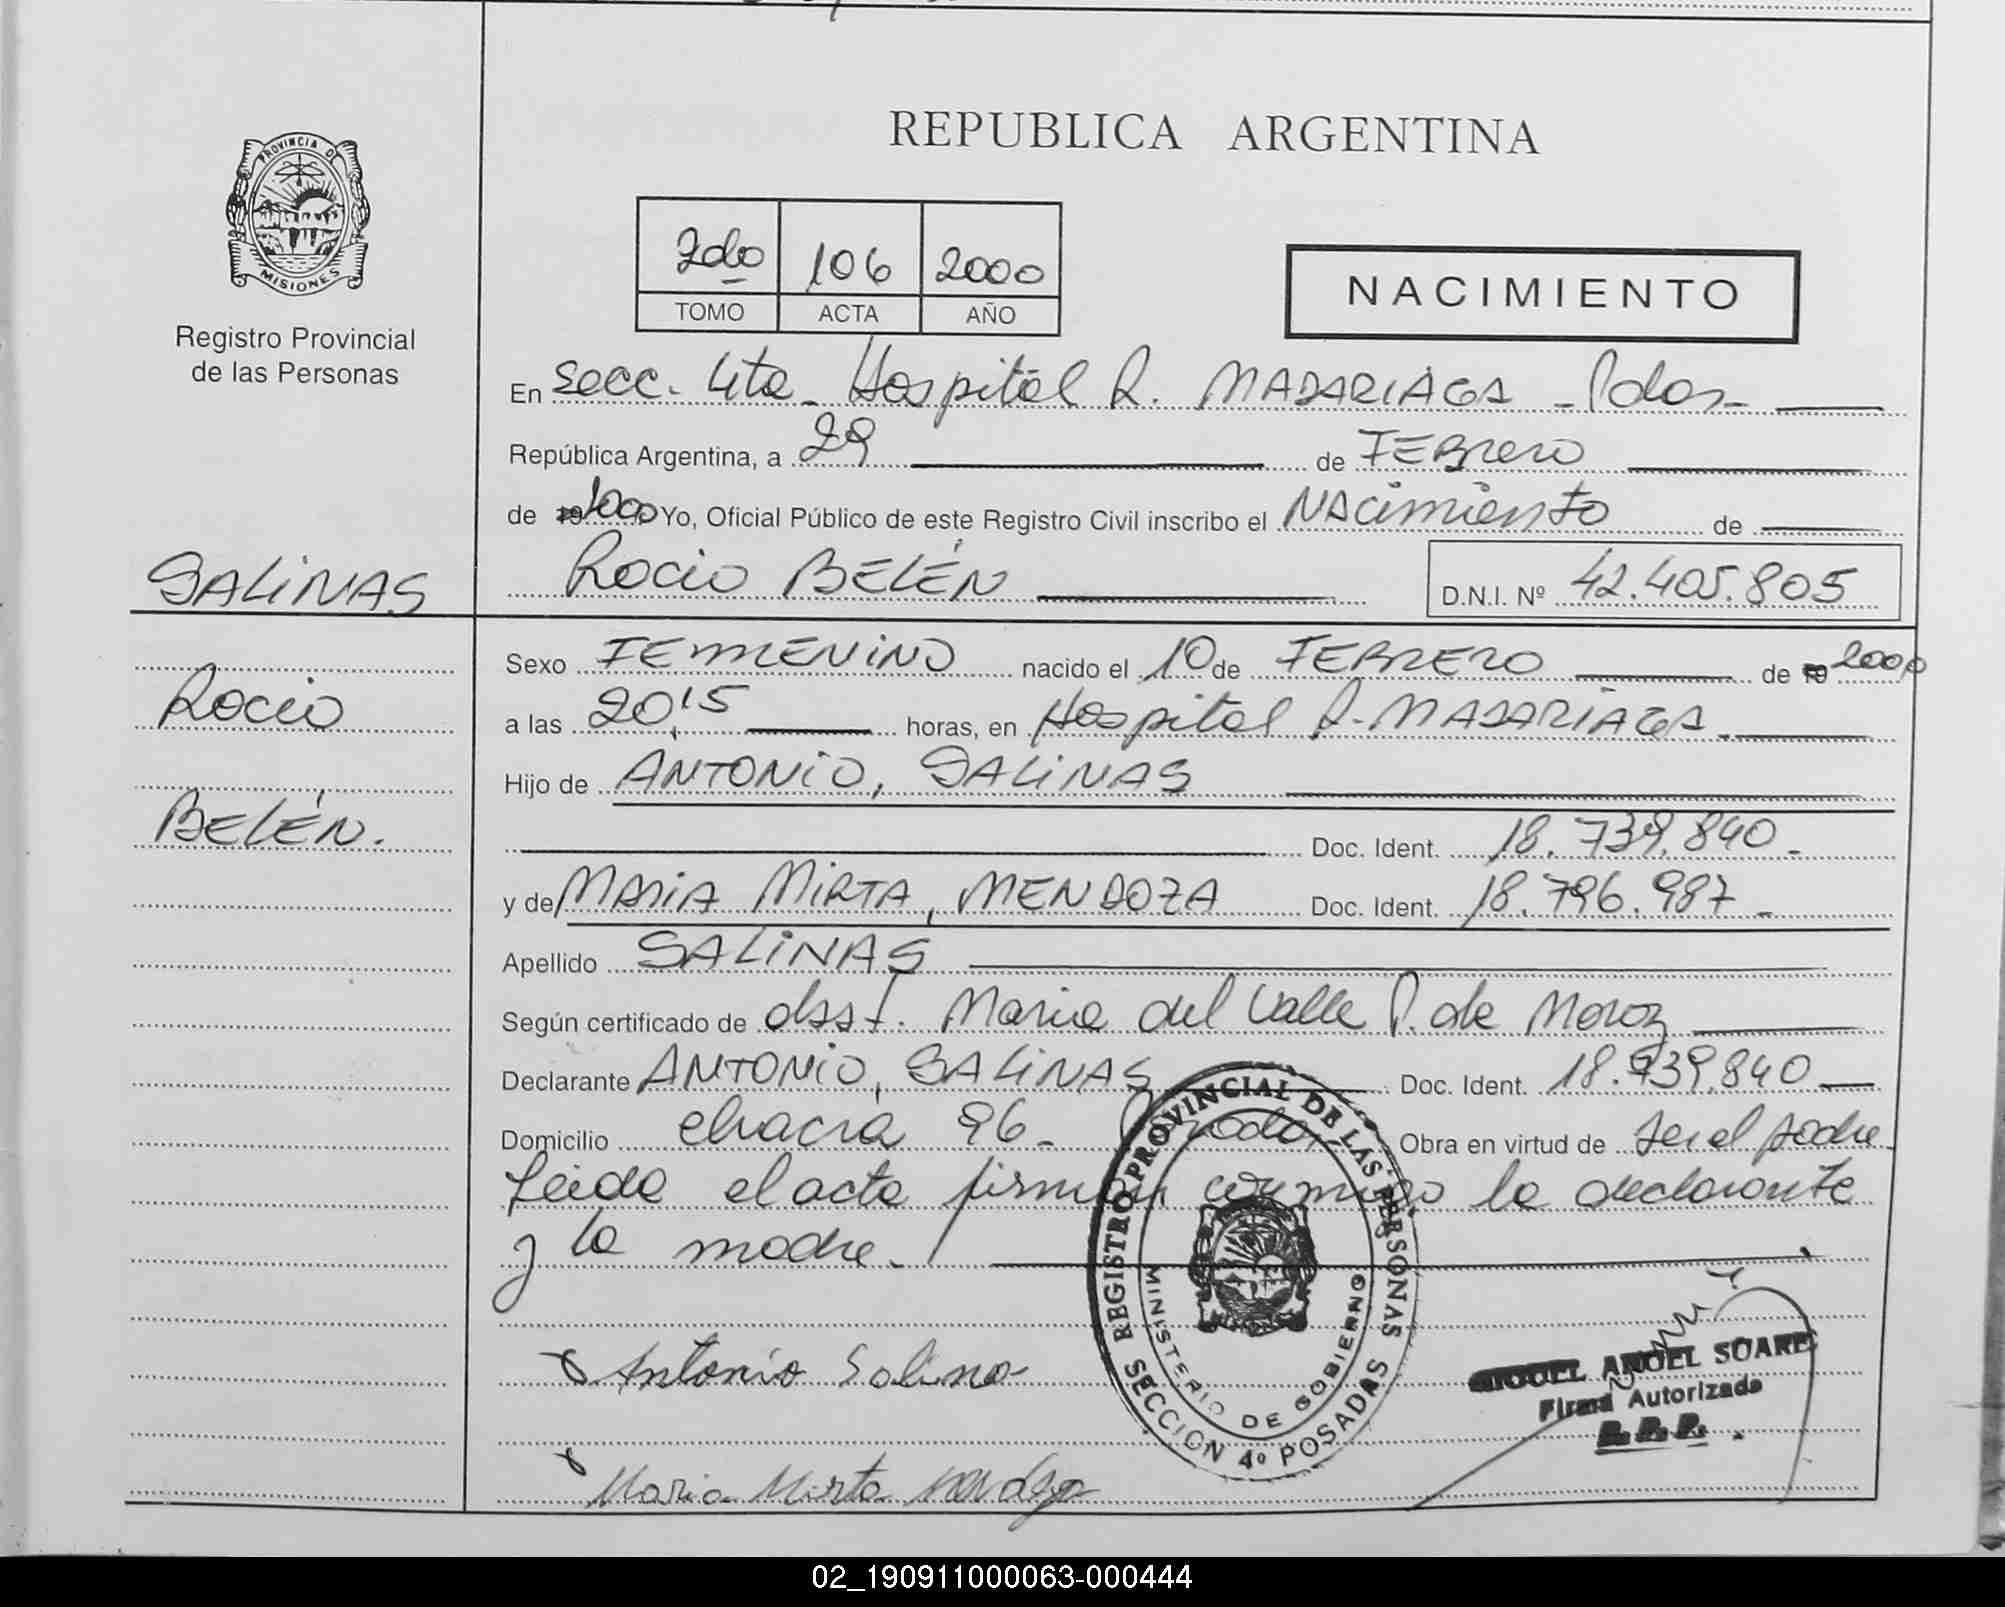 REPUBLICA ARGENTINA
PROVINCIA DE
MISIONES
Registro Provincial
de las Personas
2do 106 2000
TOMO ACTA AÑO
NACIMIENTO
En Secc. 4ta - Hospital R. MADARIAGA - Pdas -
República Argentina, a 29 de FEBrero
de 2000 Yo, Oficial Público de este Registro Civil inscribo el NAcimiento de
SALINAS
Rocio BELÉN D.N.I. Nº 42.405.805
Sexo FEMENINO nacido el 10 de FEBRERO de 19 2000
Rocio
a las 20,15 horas, en Hospital R. MADARIAGA
Hijo de ANTONIO, SALINAS
BELÉN.
Doc. Ident. 18.739.840.-
y de MARIA MIRTA, MENDOZA Doc. Ident. 18.796.987 -
Apellido SALINAS
Según certificado de obst. Maria del Valle P. de Moroz
Declarante ANTONIO, SALINAS Doc. Ident. 18.739.840
Domicilio chacra 96 - Obra en virtud de ser el padre
Leida el acta firman conmigo la declarante
y la madre.
REGISTRO PROVINCIAL DE LAS PERSONAS
MINISTERIO DE GOBIERNO
SECCION 4º POSADAS
Antonio Salina
MIGUEL ANGEL SOARE
Firma Autorizada
R.P.P.
Maria Mirta Mendoza
02_190911000063-000444